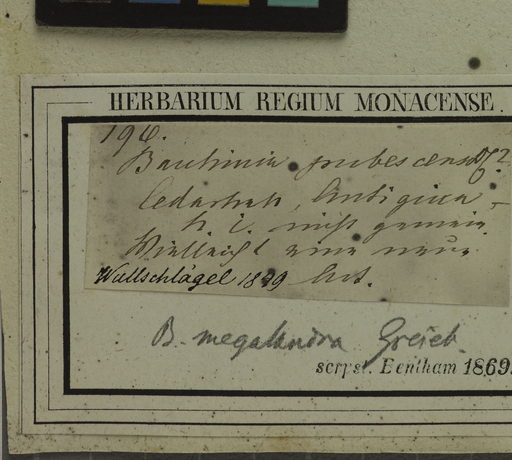 HERBARIUM REGIUM MONACENSE.
196.
Bauhinia pubescens DC?
Cedarhall, Antigua
h. i. nicht gemein
Vielleicht eine neue
Wullschlägel 1849 Art.
B. megalandra Griseb.
scrps. Bentham 1869.